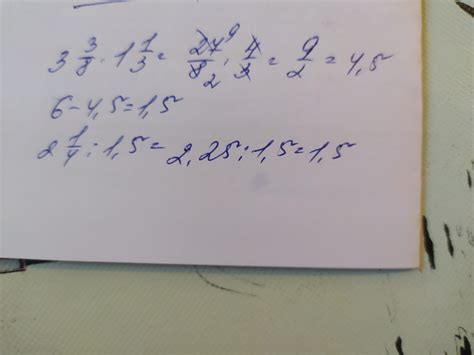 3 3/8 · 1 1/3 = 27/8 · 4/3 = 9/2 = 4,5
6 - 4,5 = 1,5
2 1/4 : 1,5 = 2,25 : 1,5 = 1,5